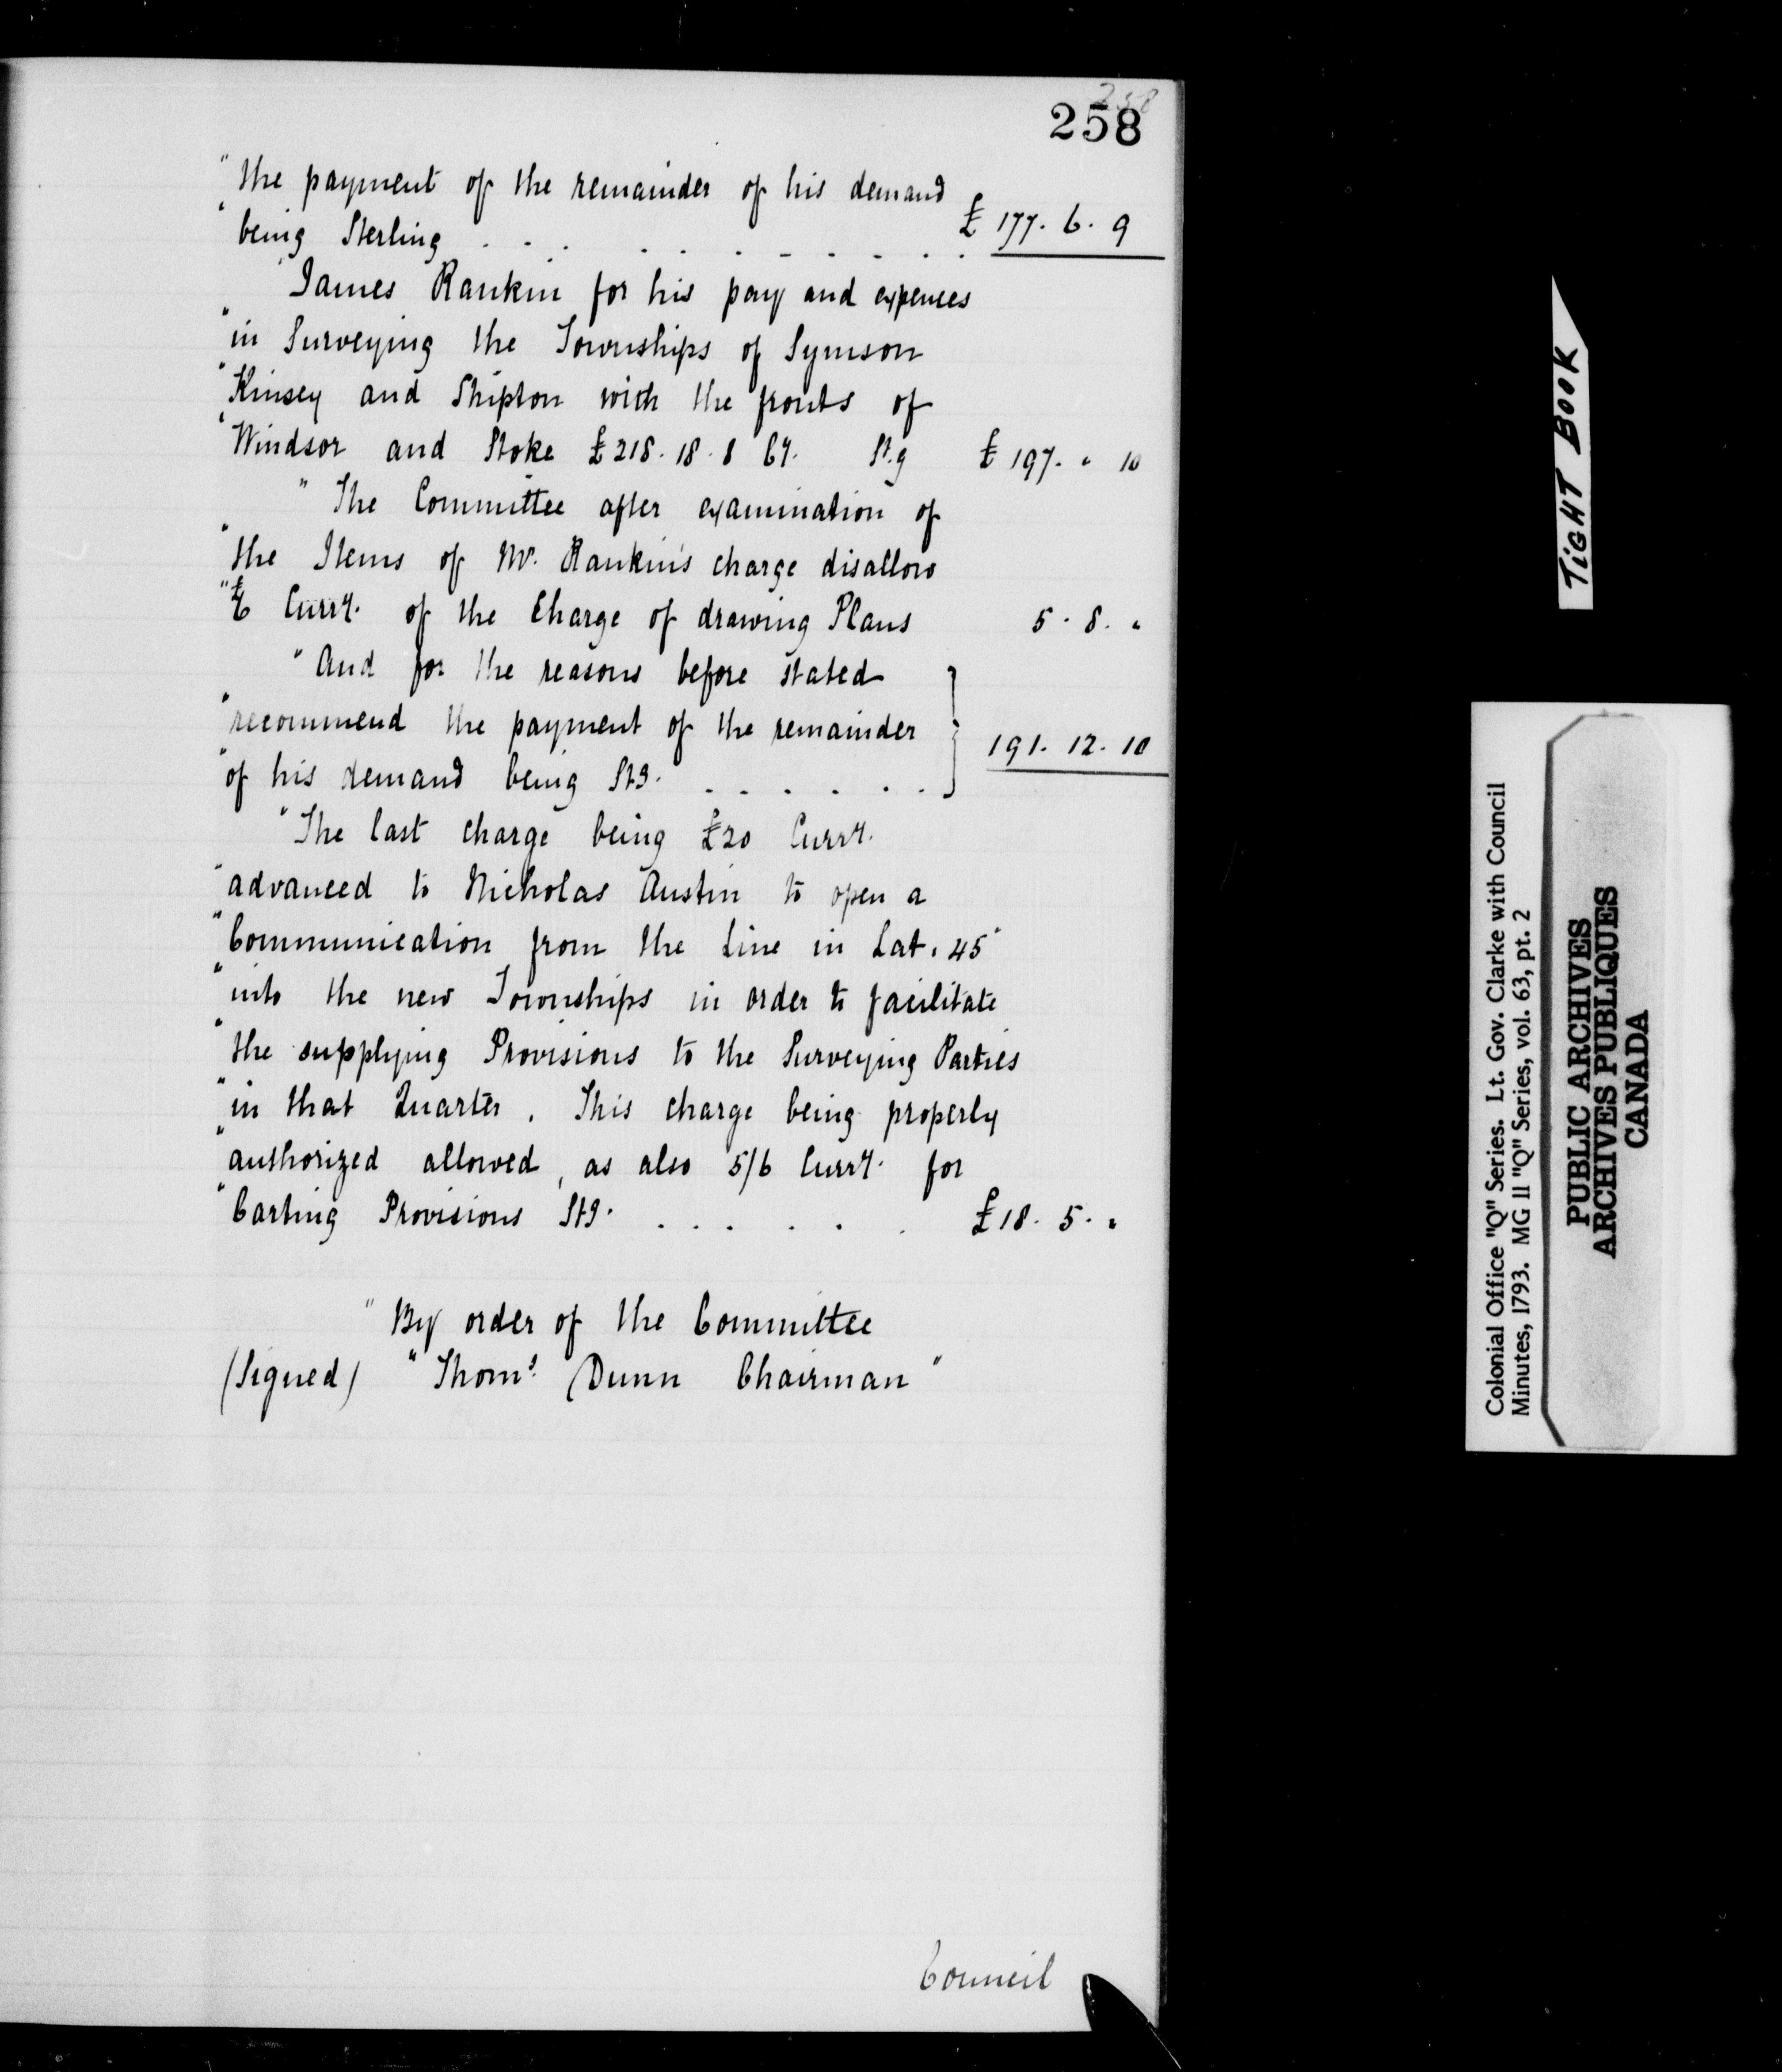 258
258
"the payment of the remainder of his demand
"being Sterling . . . . . . . . . . £177. 6. 9
"James Rankin for his pay and expences
"in Surveying the Townships of Symson
"Kinsey and Shipton with the fronts of
"Windsor and Stoke £218. 18. 8 Cy. St.g £197. " 10
"The Committee after examination of
"the Items of Mr. Rankin's charge disallow
"£6 Curry. of the Charge of drawing Plans 5. 8. "
"And for the reasons before stated
"recommend the payment of the remainder
"of his demand being Stg. . . . . . . 191. 12. 10
"The last charge being £20 Curry.
"advanced to Nicholas Austin to open a
"Communication from the Line in Lat. 45°
"into the new Townships in order to facilitate
"the supplying Provisions to the Surveying Parties
"in that Quarter. This charge being properly
"authorized allowed, as also 5/6 Curry. for
"Carting Provisions Stg. . . . . . . £18. 5. "
"By order of the Committee
(Signed) "Thoms. Dunn Chairman"
Council
TIGHT BOOK
Colonial Office "Q" Series. Lt. Gov. Clarke with Council
Minutes, 1793. MG 11 "Q" Series, vol. 63, pt. 2
PUBLIC ARCHIVES
ARCHIVES PUBLIQUES
CANADA